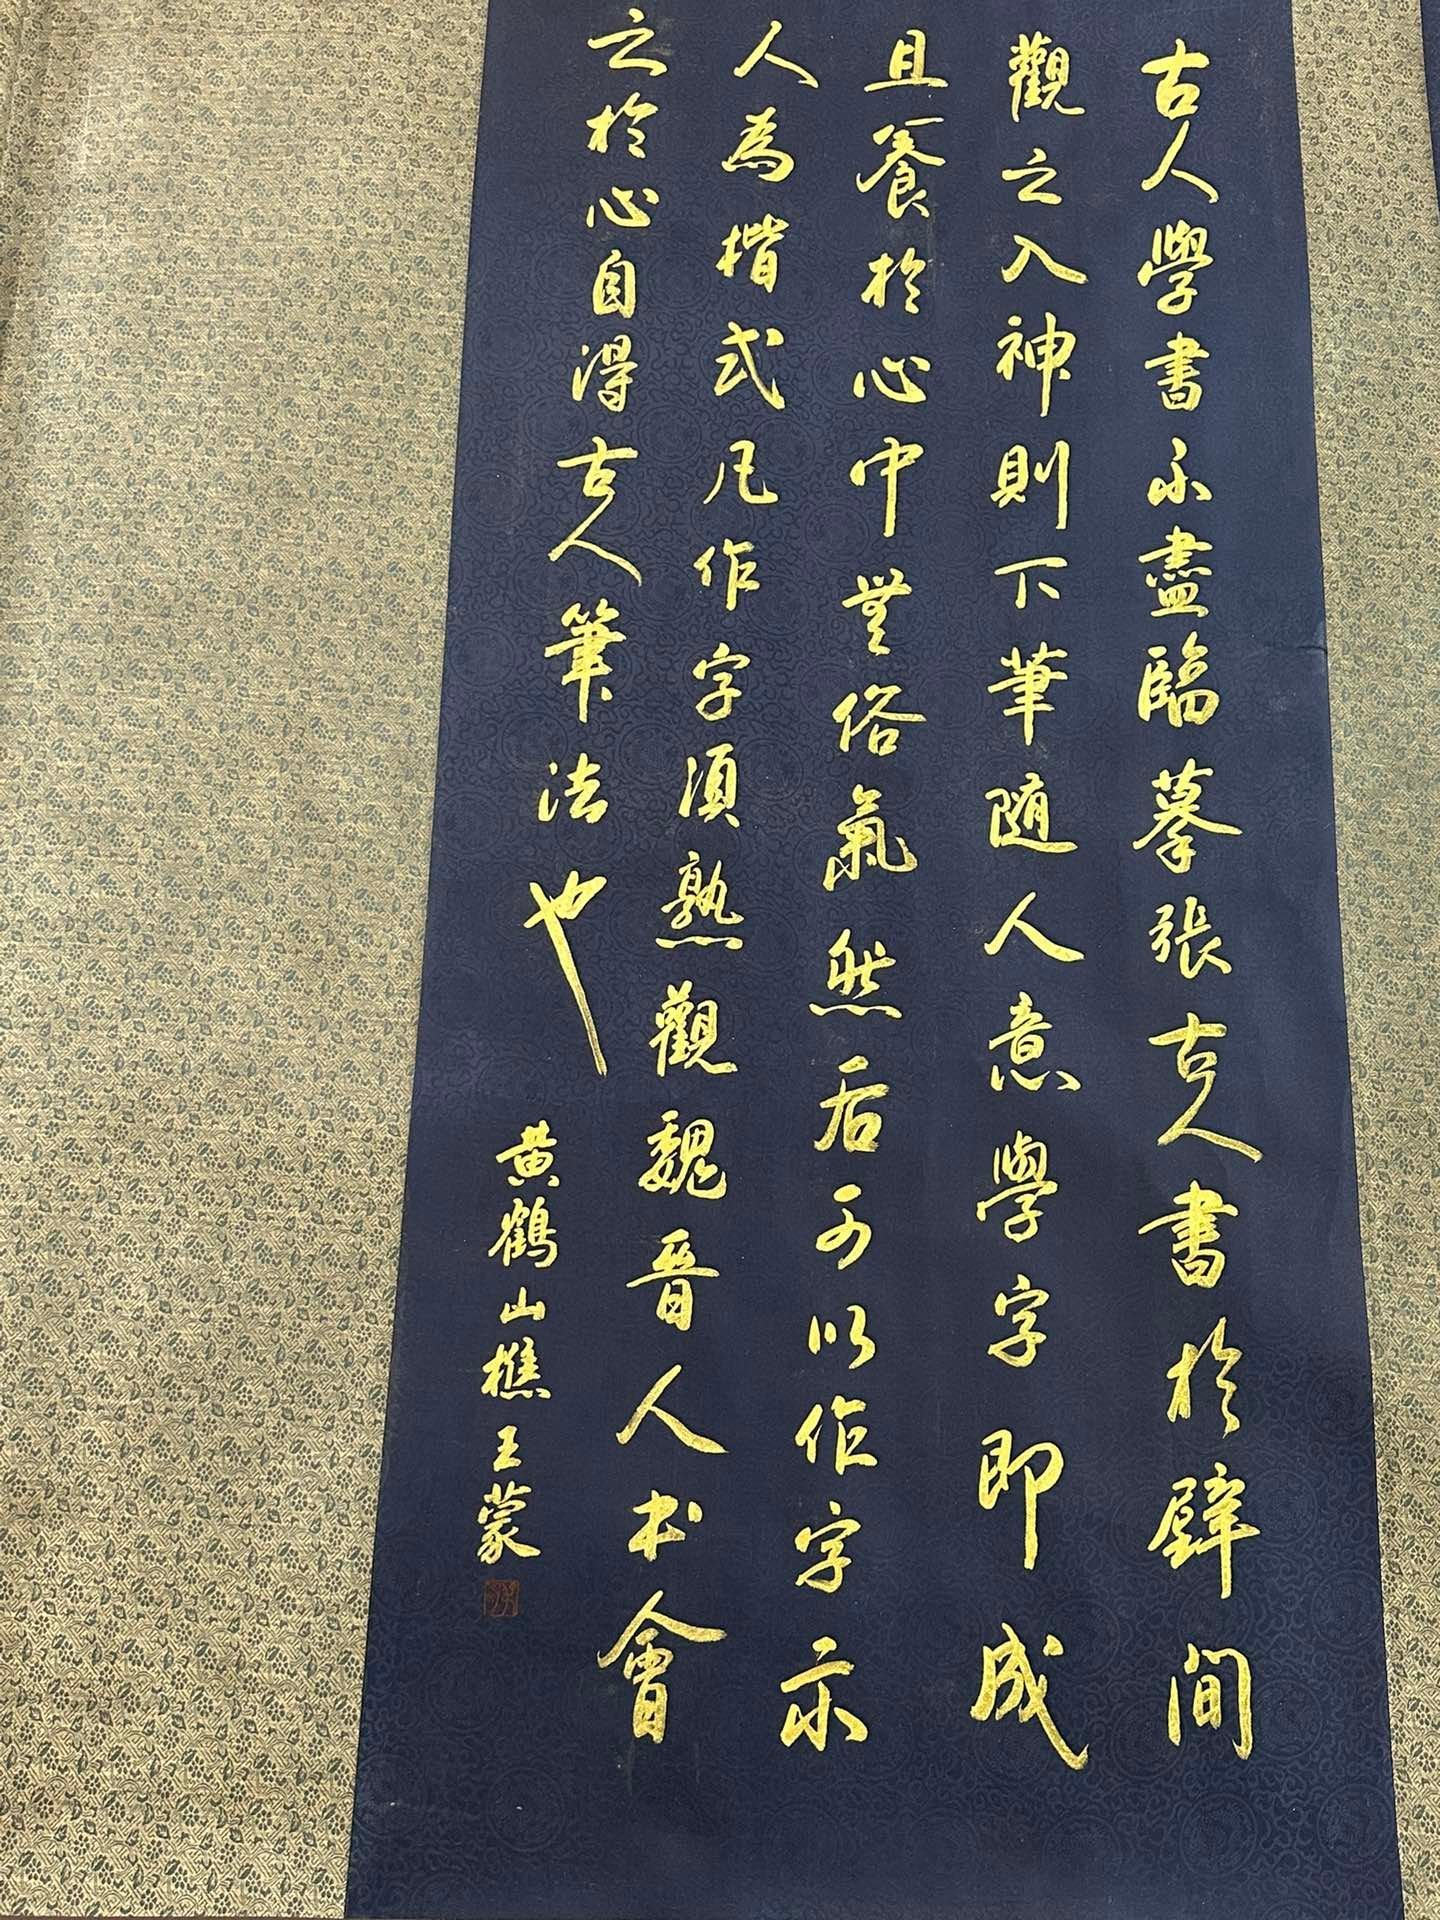 古人學書不盡臨摹張古人書於壁間
觀之入神則下筆隨人意學字即成
且養於心中無俗氣然后可以作字示
人為楷式凡作字須熟觀魏晉人书會
之於心自得古人筆法也
黄鶴山樵王蒙